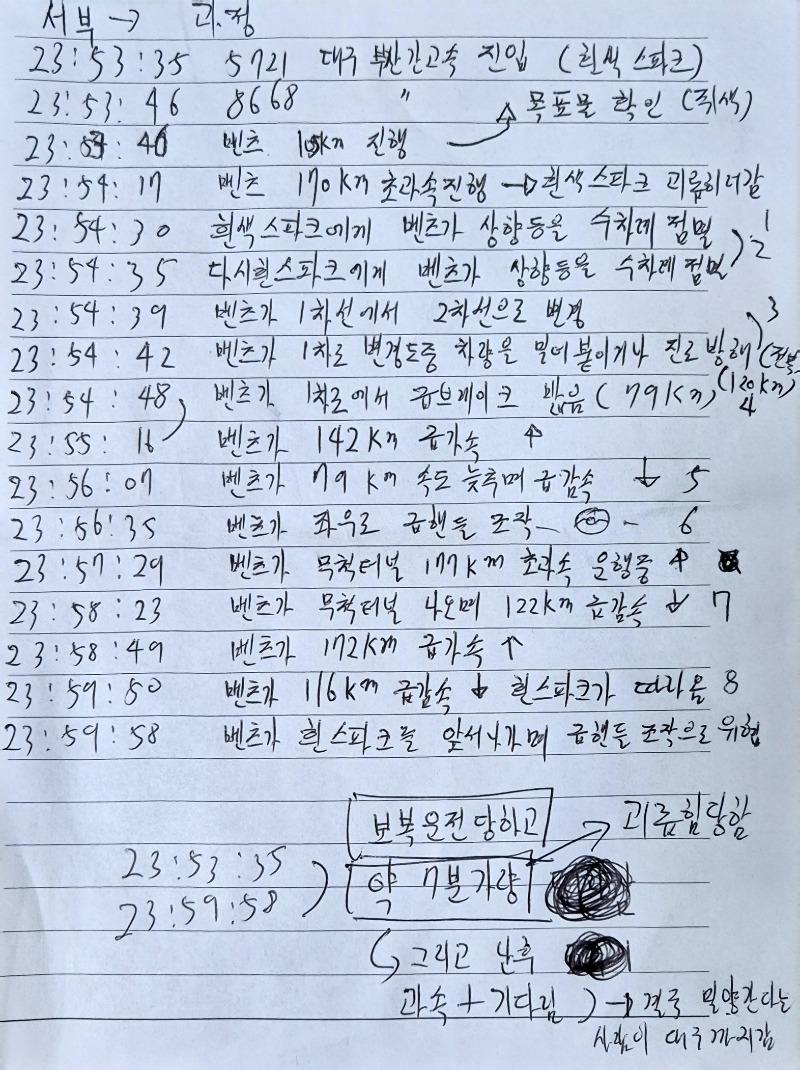 서부 → 과.정
23:53:35 5721 대구 부산간고속 진입 (흰색 스파크)
23:53:46 8668 〃 목표물 확인 (쥐색)
벤츠 105km 진행
23:54:17 벤츠 170km 초과속진행 → 흰색스파크 괴롭히러감
23:54:30 흰색스파크에게 벤츠가 상향등을 수차례 점멸 1
23:54:35 다시흰스파크에게 벤츠가 상향등을 수차례 점멸 2
23:54:39 벤츠가 1차선에서 2차선으로 변경 3
23:54:42 벤츠가 1차로 변경도중 차량을 밀어붙이거나 진로 방해
23:54:48 벤츠가 1차로에서 급브레이크 밟음 (79km) (120km) 4
23:55:16 벤츠가 142km 급가속 ↑
23:56:07 벤츠가 79km 속도 늦추며 급감속 ↓ 5
23:56:35 벤츠가 좌우로 급핸들 조작 6
23:57:29 벤츠가 무척터널 177km 초과속 운행중 ↑
23:58:23 벤츠가 무척터널 나오며 122km 급감속 ↓ 7
23:58:49 벤츠가 172km 급가속 ↑
23:59:50 벤츠가 116km 급감속 ↓ 흰스파크가 따라옴 8
23:59:58 벤츠가 흰스파크를 앞서나가며 급핸들 조작으로 위협
보복운전당하고 괴롭힘당함
23:53:35
23:59:58
약 7분가량
그리고 난후
과속 + 기다림 → 결국 밀양간다는
사람이 대구까지감